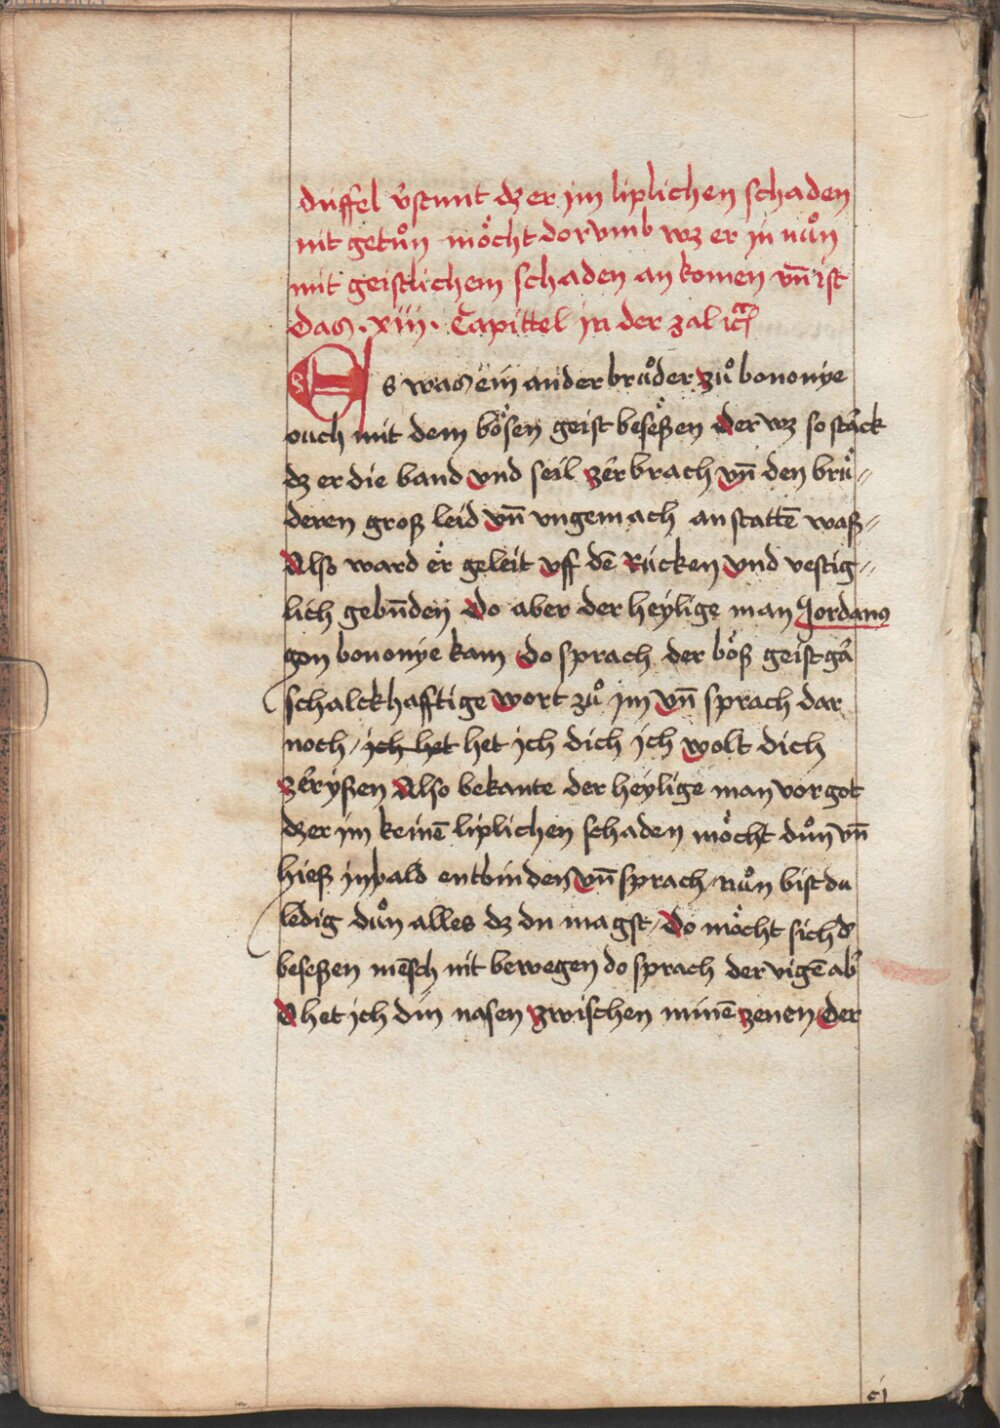 düffel v̓stunt dz er jm liplichen schaden
nit getuͦn moͤcht dorvmb wz er in nuͦn
mit geistlichem schaden an komen vn̄ ist
Das .xiii. Capittel in der zal
Es was ein ander bruͦder zuͦ bononye
ouch mit dem boͤsen geist beseßen der wz so starck
dz er die band vnd seil zerbrach vn̄ den bruͤ⸗
deren groß leid vn̄ vngemach an stattē waß⸗
Also ward er geleit vff dē Rücken vnd vestig⸗
lich gebūden Do aber der heylige man Jordanꝰ
gon bononye kam Do sprach der boͤß geist gar
schalckhafftige wort zuͦ jm vn̄ sprach dar
noch / ich het het ich dich ich wolt dich
zeryßen Also bekante der heylige man vor got
dz er jm keinē liplichen schaden moͤcht duͦn vn̄
hieß in bald entbinden vn̄ sprach / nuͦn bist du
ledig duͦn alles dz du magst / Do moͤcht sich d̓
beseßen mēsch nit bewegen do sprach der vigē ab̓
O het ich din nasen zwischen minē zenen Der